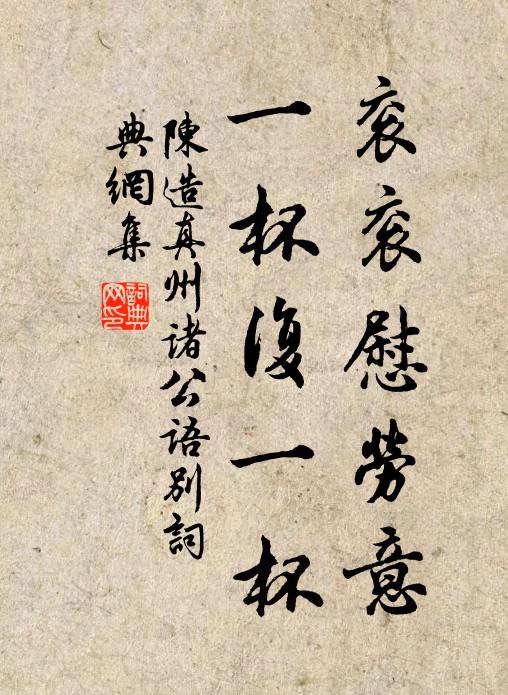 衮衮慰劳意
一杯復一杯
陳造真州诸公语别詞
典網集
詞典网印